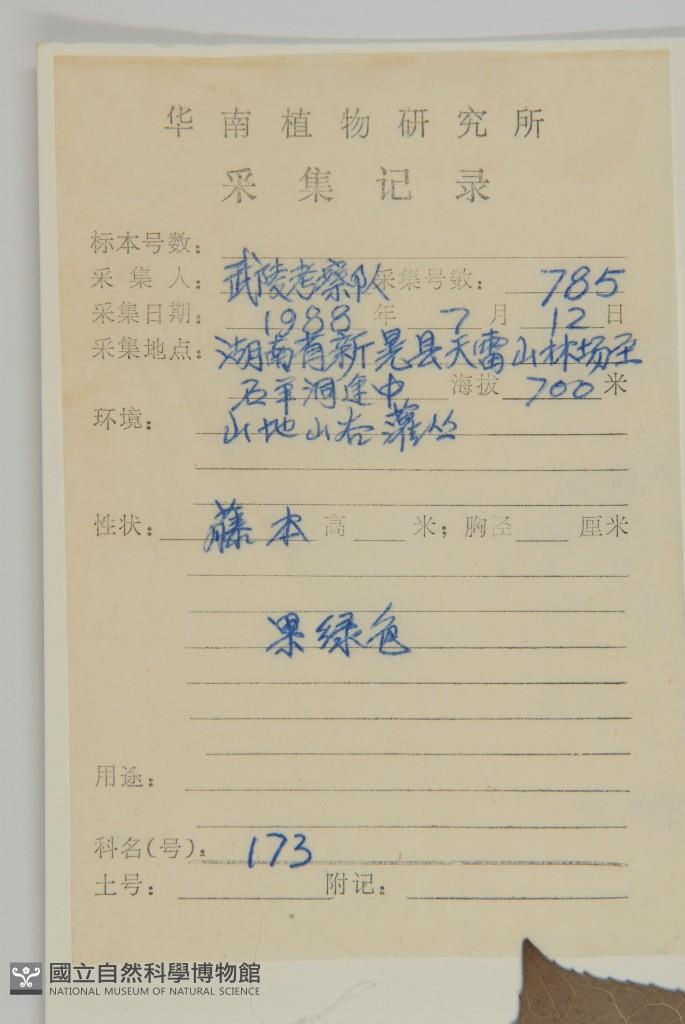 华南植物研究所
采集记录
标本号数：
采集人：武陵考察队 采集号数：785
采集日期：1988年7月12日
采集地点：湖南省新晃县天雷山林场至
石羊洞途中 海拔 700 米
环境：山地山谷灌丛
性状：藤本 高 米；胸径 厘米
果绿色
用途：
科名(号)：173
土号： 附记：
國立自然科學博物館
NATIONAL MUSEUM OF NATURAL SCIENCE